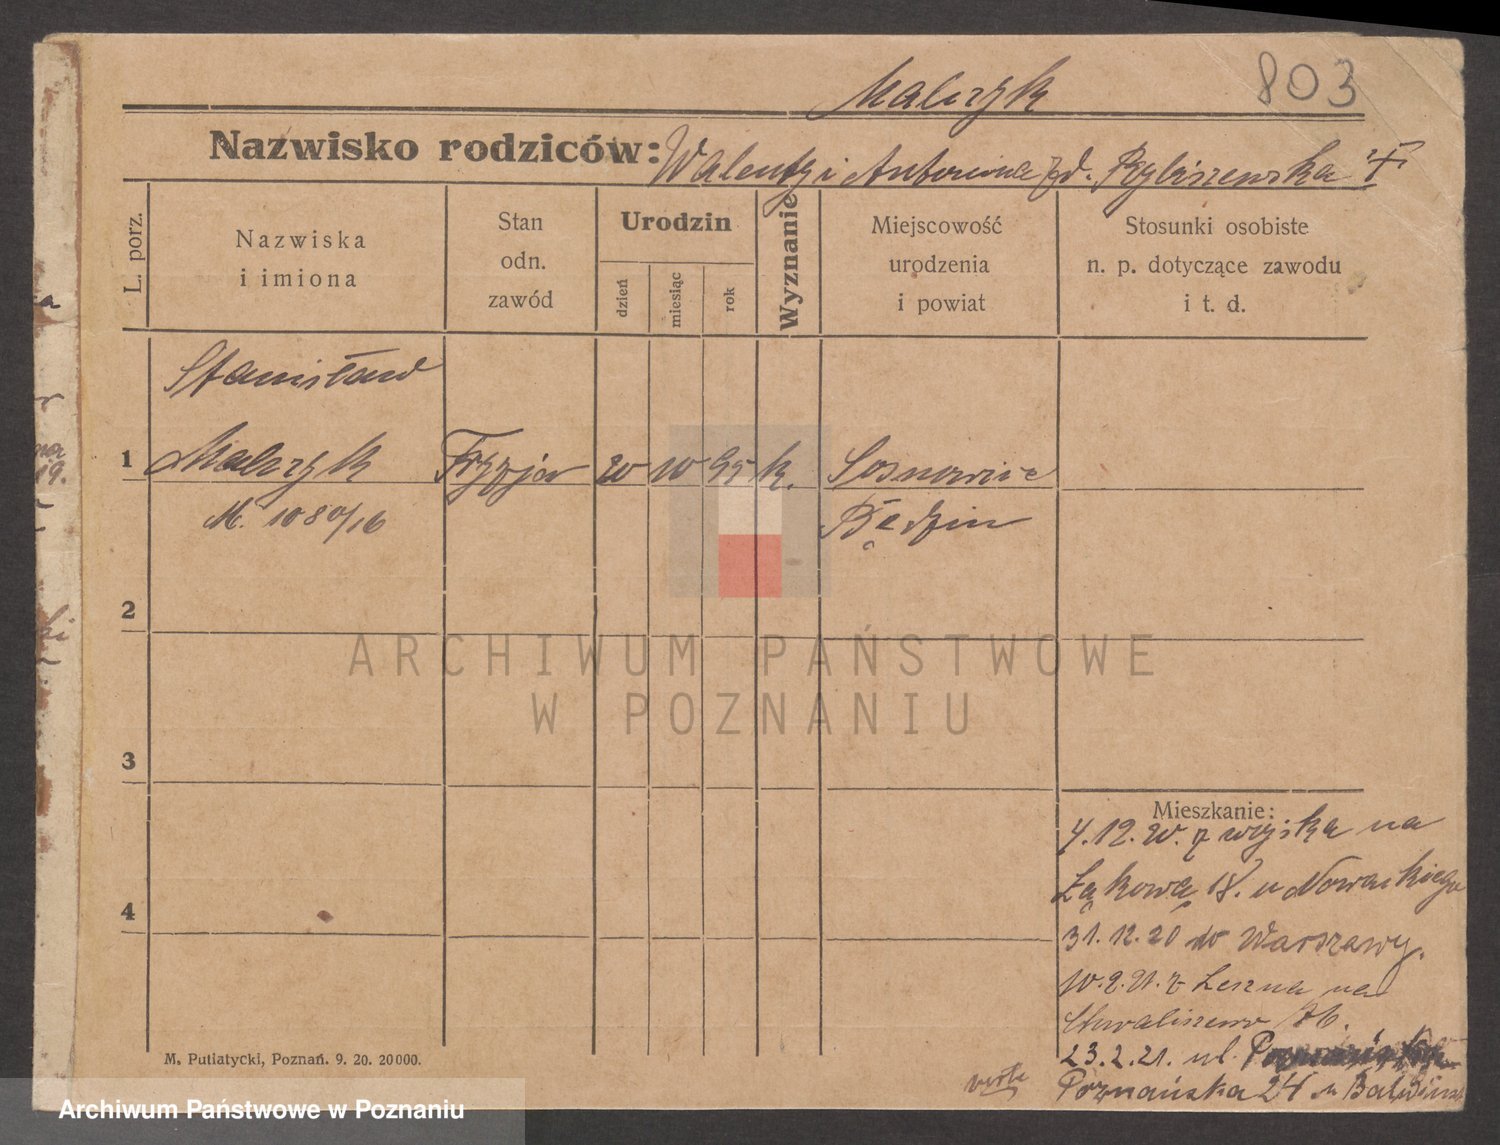 803
Malczyk
Nazwisko rodziców: Walenty i Antonina zd. Rybiszewska
L. porz.
Nazwiska
i imiona
Stan
odn.
zawód
Urodzin
dzień
miesiąc
rok
Wyznanie
Miejscowość
urodzenia
i powiat
Stosunki osobiste
n. p. dotyczące zawodu
i t. d.
Stanisław
1 Malczyk Fryzjer 20 10 95 k. Sosnowice
M. 1080/16 Będzin
2
3
4
ARCHIWUM PAŃSTWOWE
W POZNANIU
Mieszkanie:
7.12.20. z wojska na
Łąkową 18. u Nowackiego
31.12.20 do Warszawy.
10.2.21. z Leszna na
Chwaliszewo 76.
23.2.21. ul.
Poznańska 24 u
verte
M. Putiatycki, Poznań. 9. 20. 20000.
Archiwum Państwowe w Poznaniu